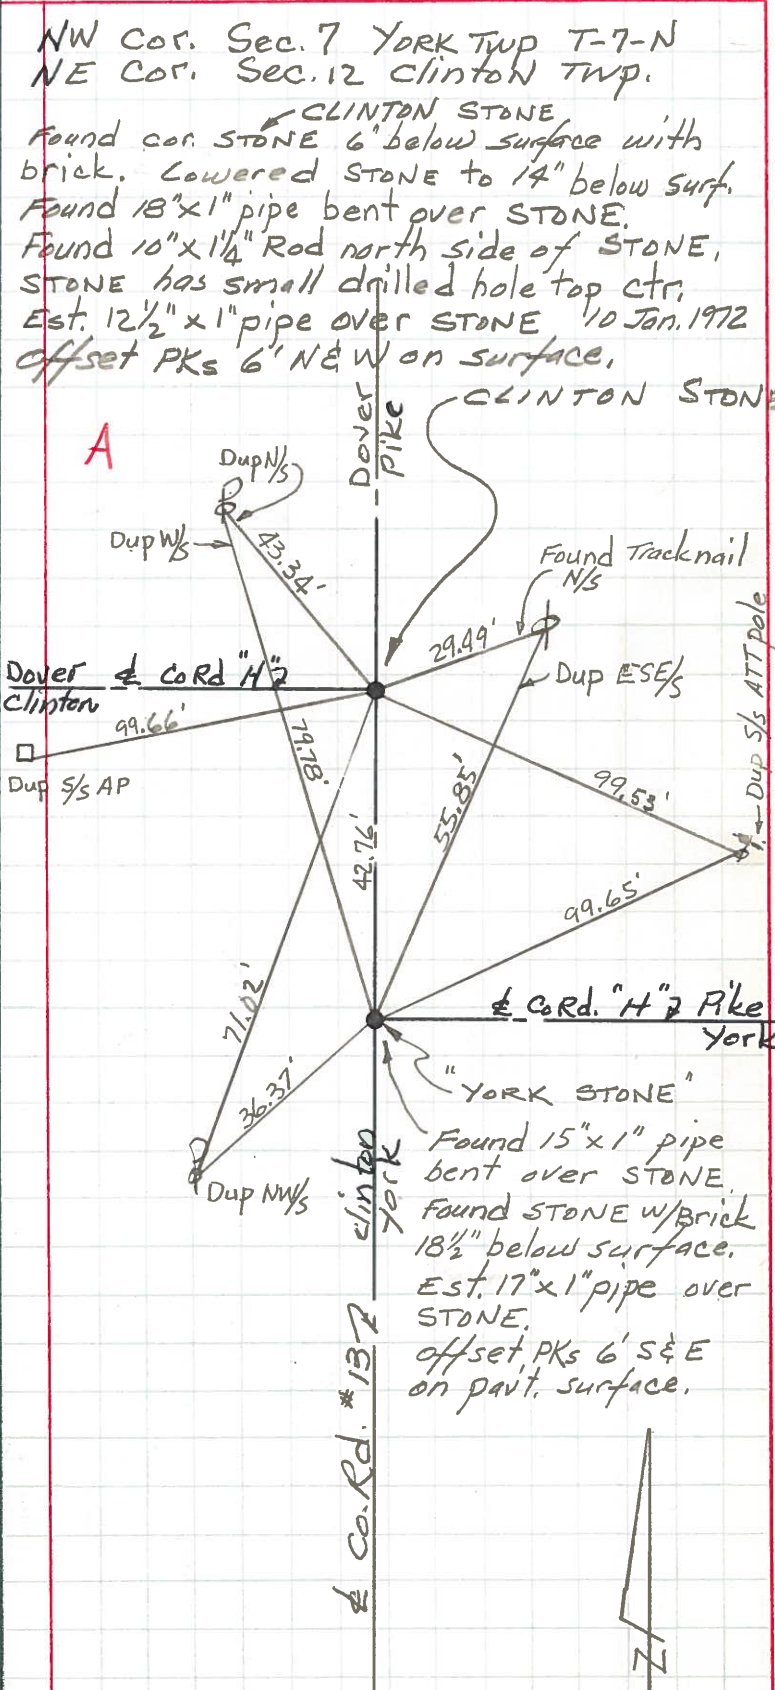 NW Cor. Sec. 7 YORK Twp T-7-N
NE Cor. Sec. 12 Clinton Twp.
CLINTON STONE
Found cor. STONE 6" below surface with
brick. Lowered STONE to 14" below surf.
Found 18"x1" pipe bent over STONE.
Found 10"x1¼" Rod north side of STONE.
STONE has small drilled hole top ctr.
Est. 12½" x 1" pipe over STONE 10 Jan. 1972
offset PKs 6' N & W on surface.
Dover
Pike
CLINTON STONE
A
Dup N/s
Dup W/s
43.34'
Found Tracknail
N/s
29.49'
Dup ESE/s
Dup S/s ATT pole
Dover ℄ Co Rd "H"
Clinton
99.66'
Dup S/s AP
79.78'
42.76'
55.85'
99.53'
99.65'
71.02'
36.37'
℄ Co Rd. "H" Pike
York
"YORK STONE"
Dup NW/s
Clinton
York
Found 15"x1" pipe
bent over STONE.
Found STONE w/Brick
18½" below surface.
Est. 17"x1" pipe over
STONE.
offset PKs 6' S & E
on pav't. surface.
℄ Co. Rd. #13
N